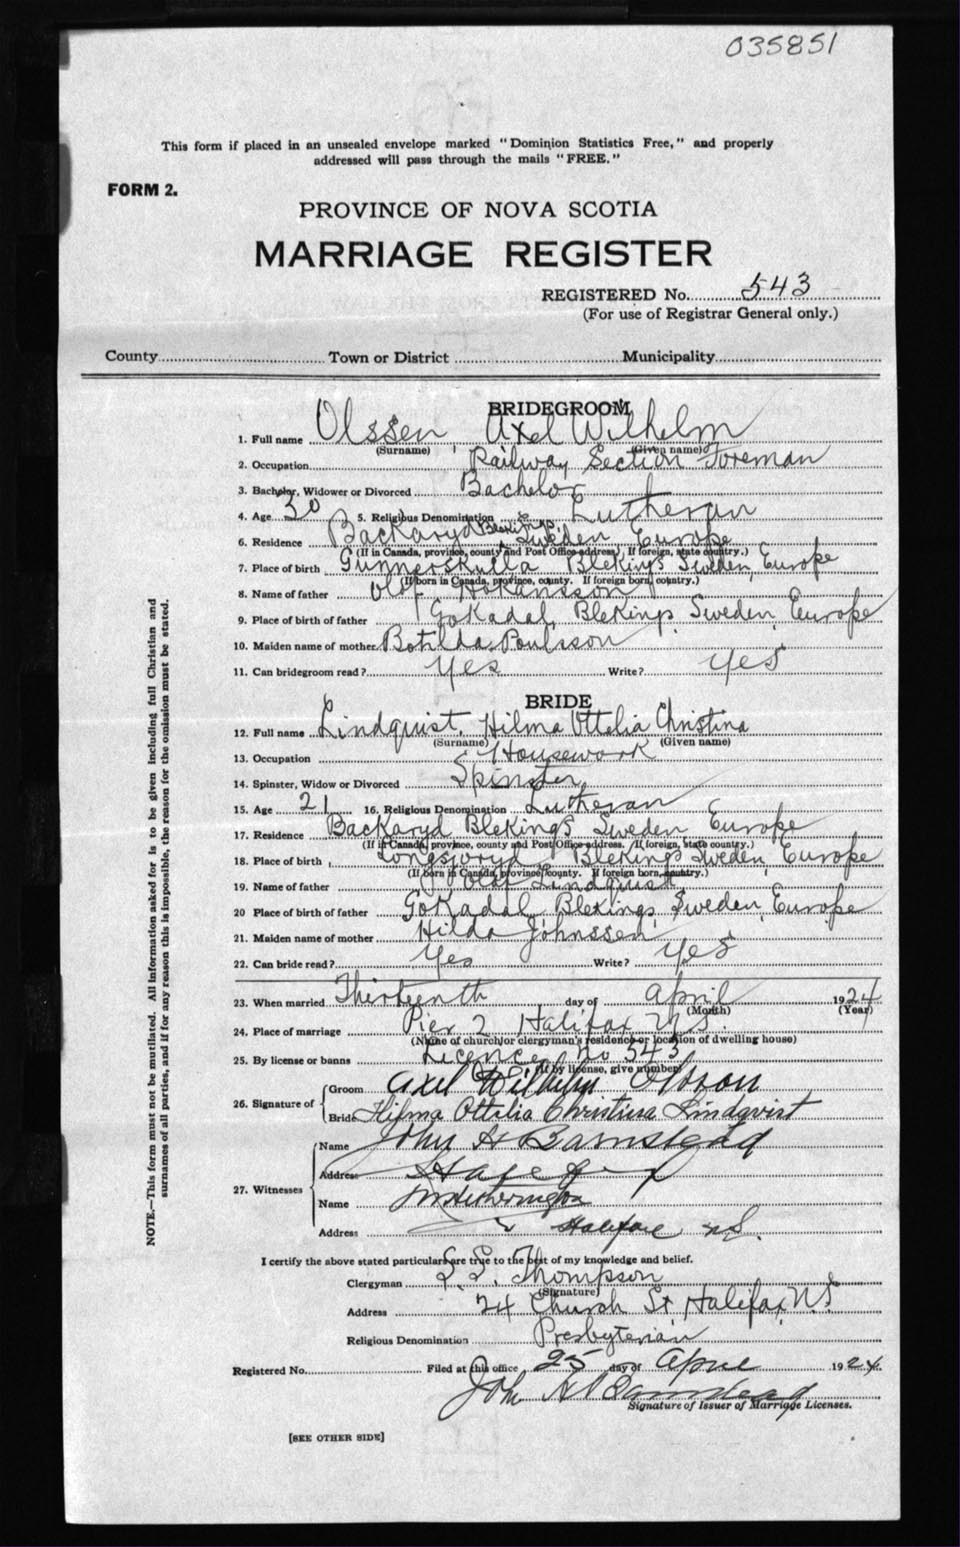 035851
This form if placed in an unsealed envelope marked "Dominion Statistics Free," and properly
addressed will pass through the mails "FREE."
FORM 2.
PROVINCE OF NOVA SCOTIA
MARRIAGE REGISTER
REGISTERED No. 543
(For use of Registrar General only.)
County Town or District Municipality
BRIDEGROOM
1. Full name Olssen, Axel Wilhelm
(Surname) (Given name)
2. Occupation Railway Section Foreman
3. Bachelor, Widower or Divorced Bachelor
4. Age 30 5. Religious Denomination Lutheran
6. Residence Backaryd Sweden Europe
(If in Canada, province, county and Post Office address) If foreign, state country.)
7. Place of birth Gunnerskulla Blekings Sweden, Europe
(If born in Canada, province, county. If foreign born, country.)
8. Name of father Olof Hokansson
9. Place of birth of father GoKadal, Blekings Sweden, Europe
10. Maiden name of mother Botilda Poulsson
11. Can bridegroom read? Yes Write? Yes
BRIDE
12. Full name Lindquist, Hilma Ottelia Christina
(Surname) (Given name)
13. Occupation Housework
14. Spinster, Widow or Divorced Spinster
15. Age 21 16. Religious Denomination Lutheran
17. Residence Backaryd Blekings Sweden Europe
(If in Canada, province, county and Post Office address. If foreign, state country.)
18. Place of birth Longsjoryd, Blekings Sweden, Europe
(If born in Canada, province, county. If foreign born, country.)
19. Name of father Olof Lindquist
20 Place of birth of father GoKadal Blekings, Sweden, Europe
21. Maiden name of mother Hilda Johnssen
22. Can bride read? Yes Write? Yes
23. When married Thirteenth day of April 1924
(Month) (Year)
24. Place of marriage Pier 2 Halifax N.S.
(Name of church or clergyman's residence or location of dwelling house)
25. By license or banns Licence No 543
(If by license, give number)
26. Signature of Groom Axel Wilhelm Olsson
Bride Hilma Ottilia Christina Lindqvist
27. Witnesses Name John H Barnstead
Address Halifax
Name
Address Halifax N.S.
I certify the above stated particulars are true to the best of my knowledge and belief.
Clergyman Thompson
(Signature)
Address 24 Church St Halifax N.S
Religious Denomination Presbyterian
Registered No. Filed at this office 25 day of April 1924
John H Barnstead
Signature of Issuer of Marriage Licenses.
[SEE OTHER SIDE]
NOTE.—This form must not be mutilated. All information asked for is to be given including full Christian and
surnames of all parties, and if for any reason this is impossible, the reason for the omission must be stated.